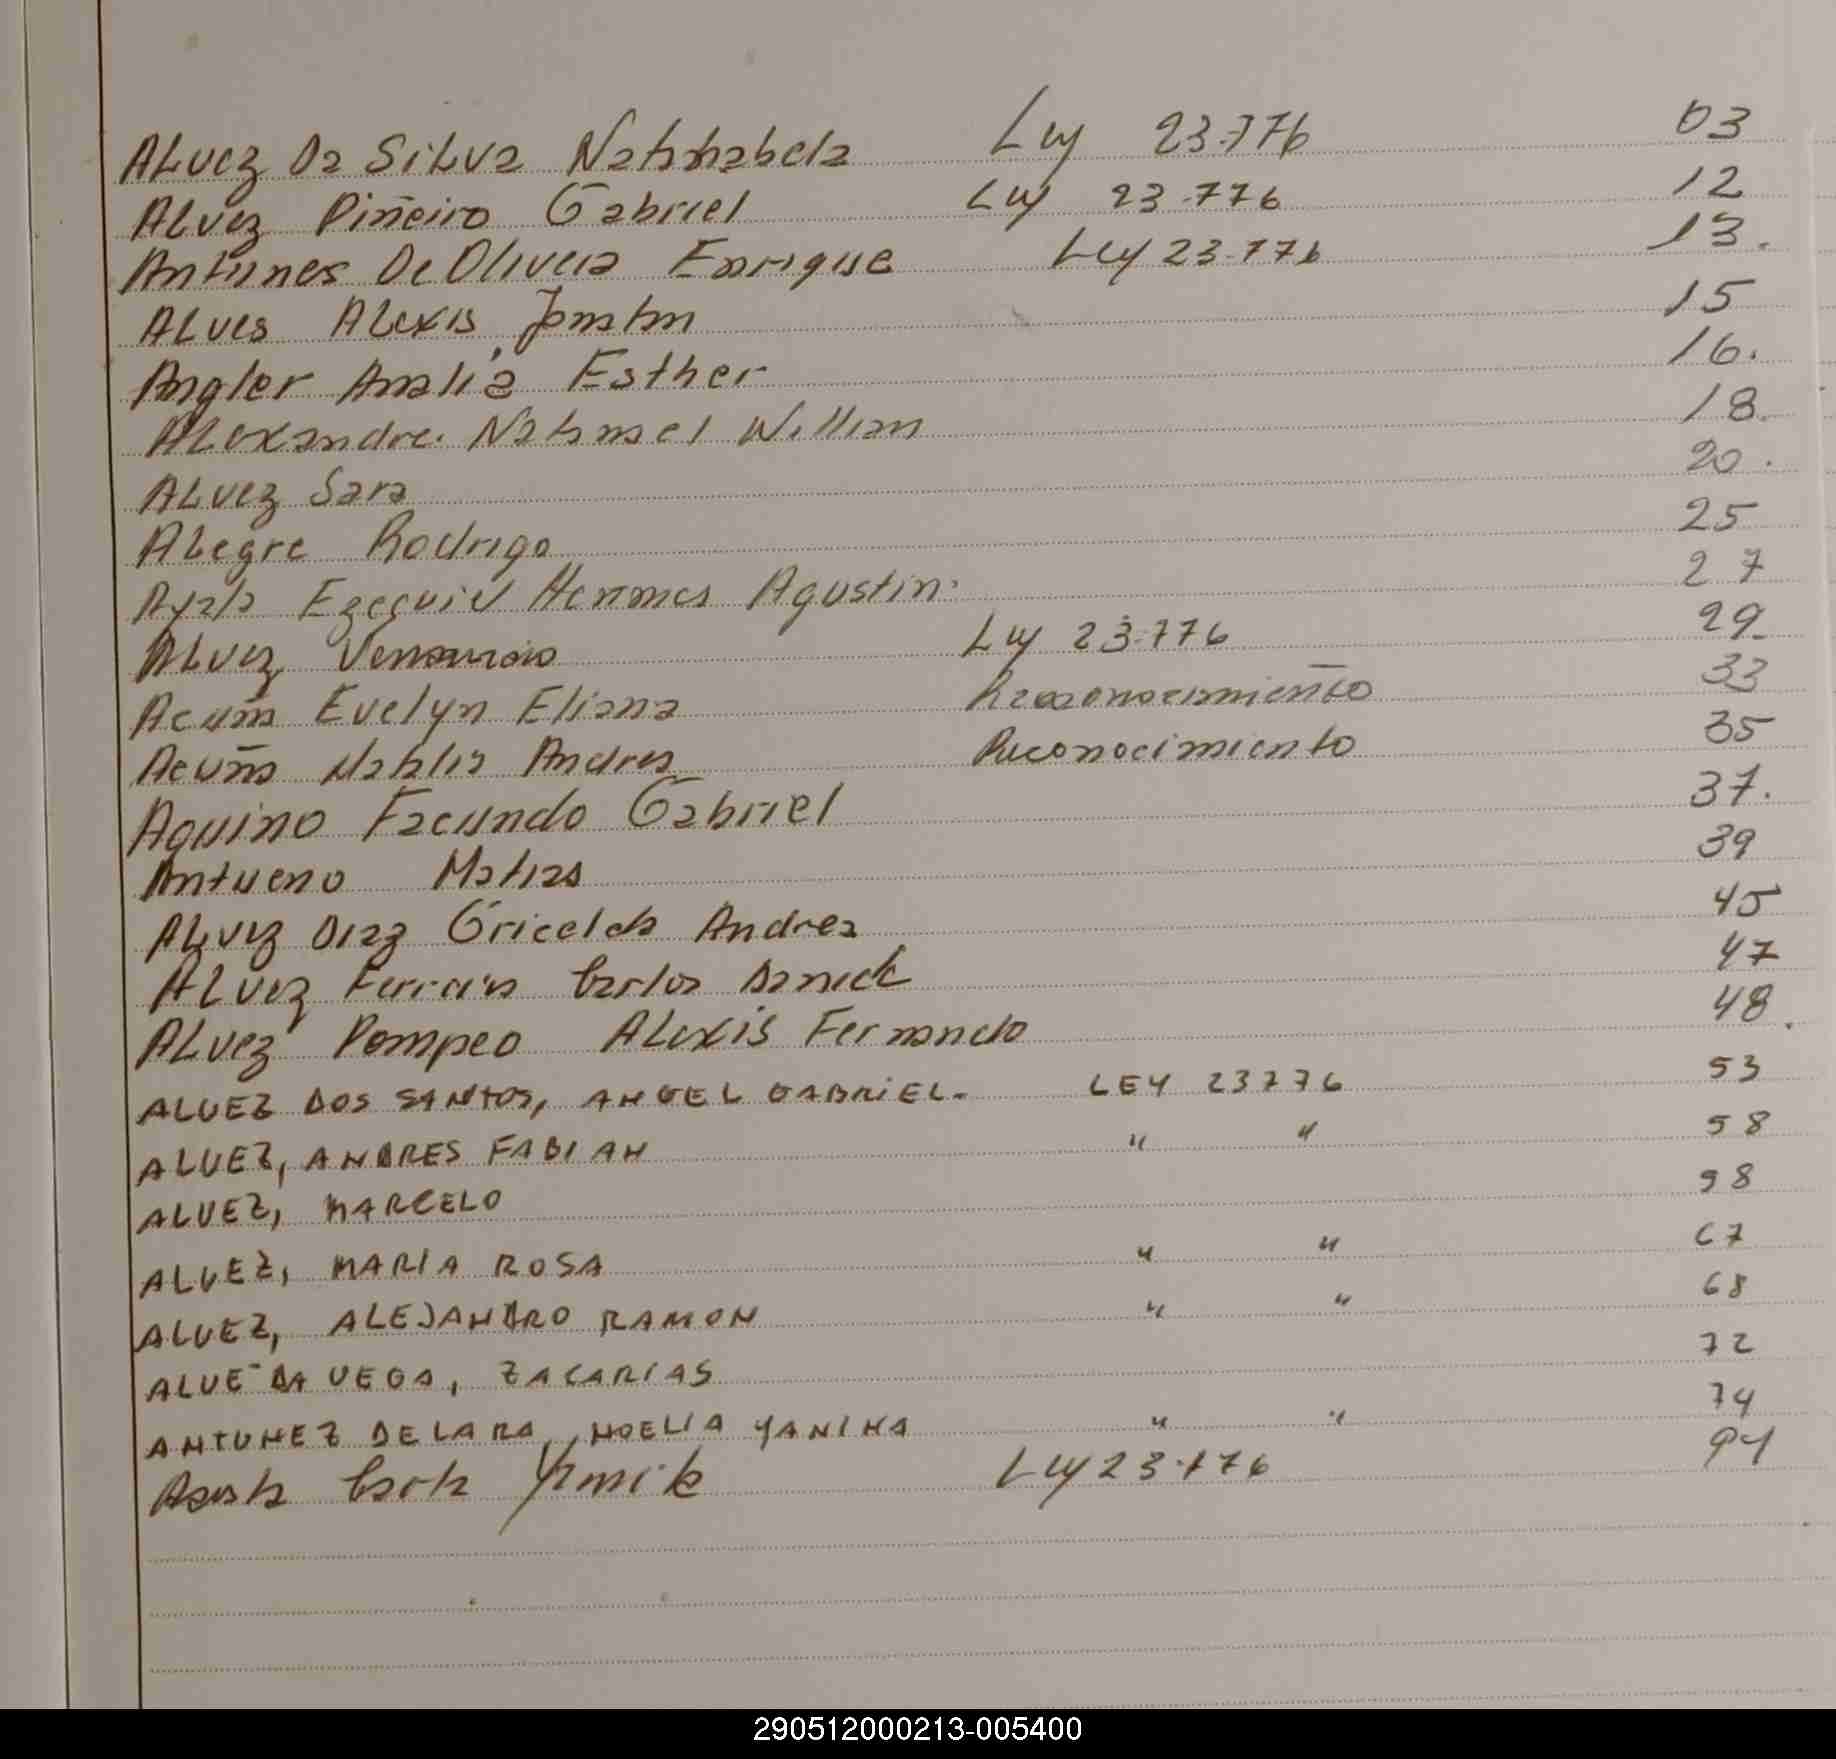 Alvez Da Silva Natanabela Ley 23.776 03
Alvez Piñeiro Gabriel Ley 23.776 12
Antunes De Olivera Enrique Ley 23.776 13.
Alves Alexis Jonatan 15
Angler Analía Esther 16.
Alexandre Natanael Willian 18.
Alvez Sara 20.
Alegre Rodrigo 25
Ayala Ezequiel Hermes Agustin 27
Alvez Ley 23.776 29
Acuña Evelyn Eliana Reconocimiento 33
Acuña Andres Reconocimiento 35
Aquino Facundo Gabriel 37.
Antueno Matias 39
Alvez Diaz Gricelda Andrea 45
Alvez Ferreira Carlos Daniel 47
Alvez Pompeo Alexis Fernando 48.
ALVEZ DOS SANTOS, ANGEL GABRIEL. LEY 23776 53
ALVEZ, ANDRES FABIAN " " 58
ALVEZ, MARCELO 98
ALVEZ, MARIA ROSA " " 67
ALVEZ, ALEJANDRO RAMON " " 68
ALVE DA VEGA, ZACARIAS 72
ANTUNEZ DE LARA, NOELIA YANINA " " 74
Acosta Carla Yamila Ley 23.776 94
290512000213-005400